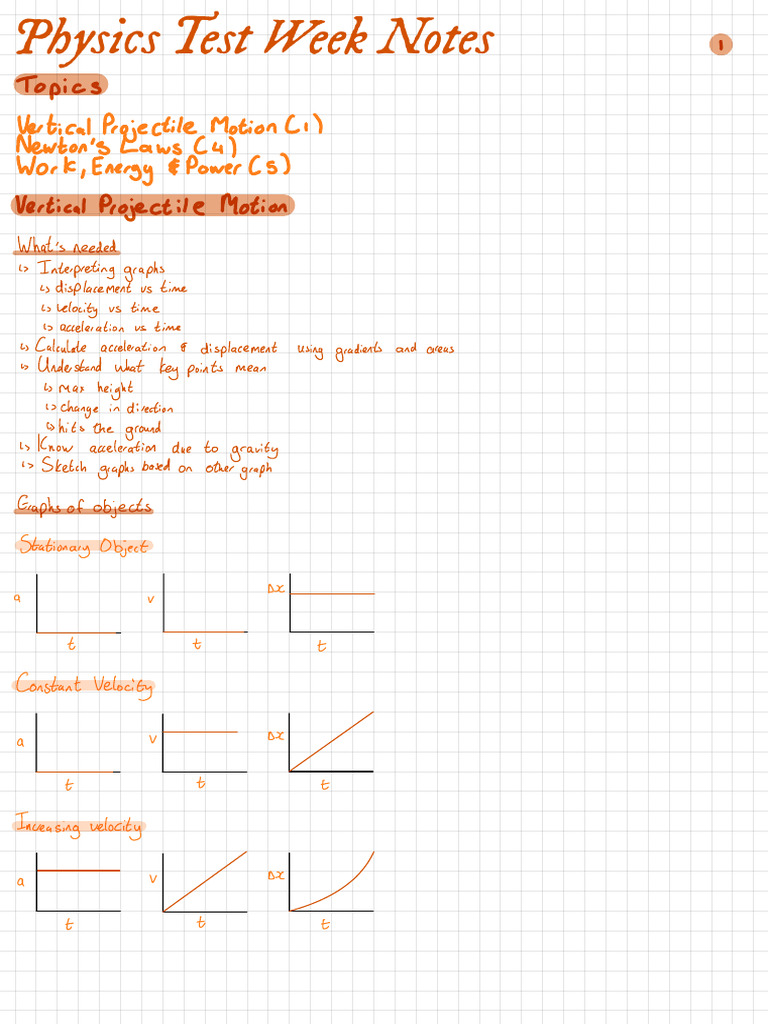 Physics Test Week Notes
1
Topics
Vertical Projectile Motion (1)
Newton's Laws (4)
Work, Energy & Power (5)
Vertical Projectile Motion
What's needed
↳ Interpreting graphs
↳ displacement vs time
↳ velocity vs time
↳ acceleration vs time
↳ Calculate acceleration & displacement using gradients and areas
↳ Understand what key points mean
↳ max height
↳ change in direction
↳ hits the ground
↳ Know acceleration due to gravity
↳ Sketch graphs based on other graph
Graphs of objects
Stationary Object
a v Δx
t t t
Constant Velocity
a v Δx
t t t
Increasing velocity
a v Δx
t t t